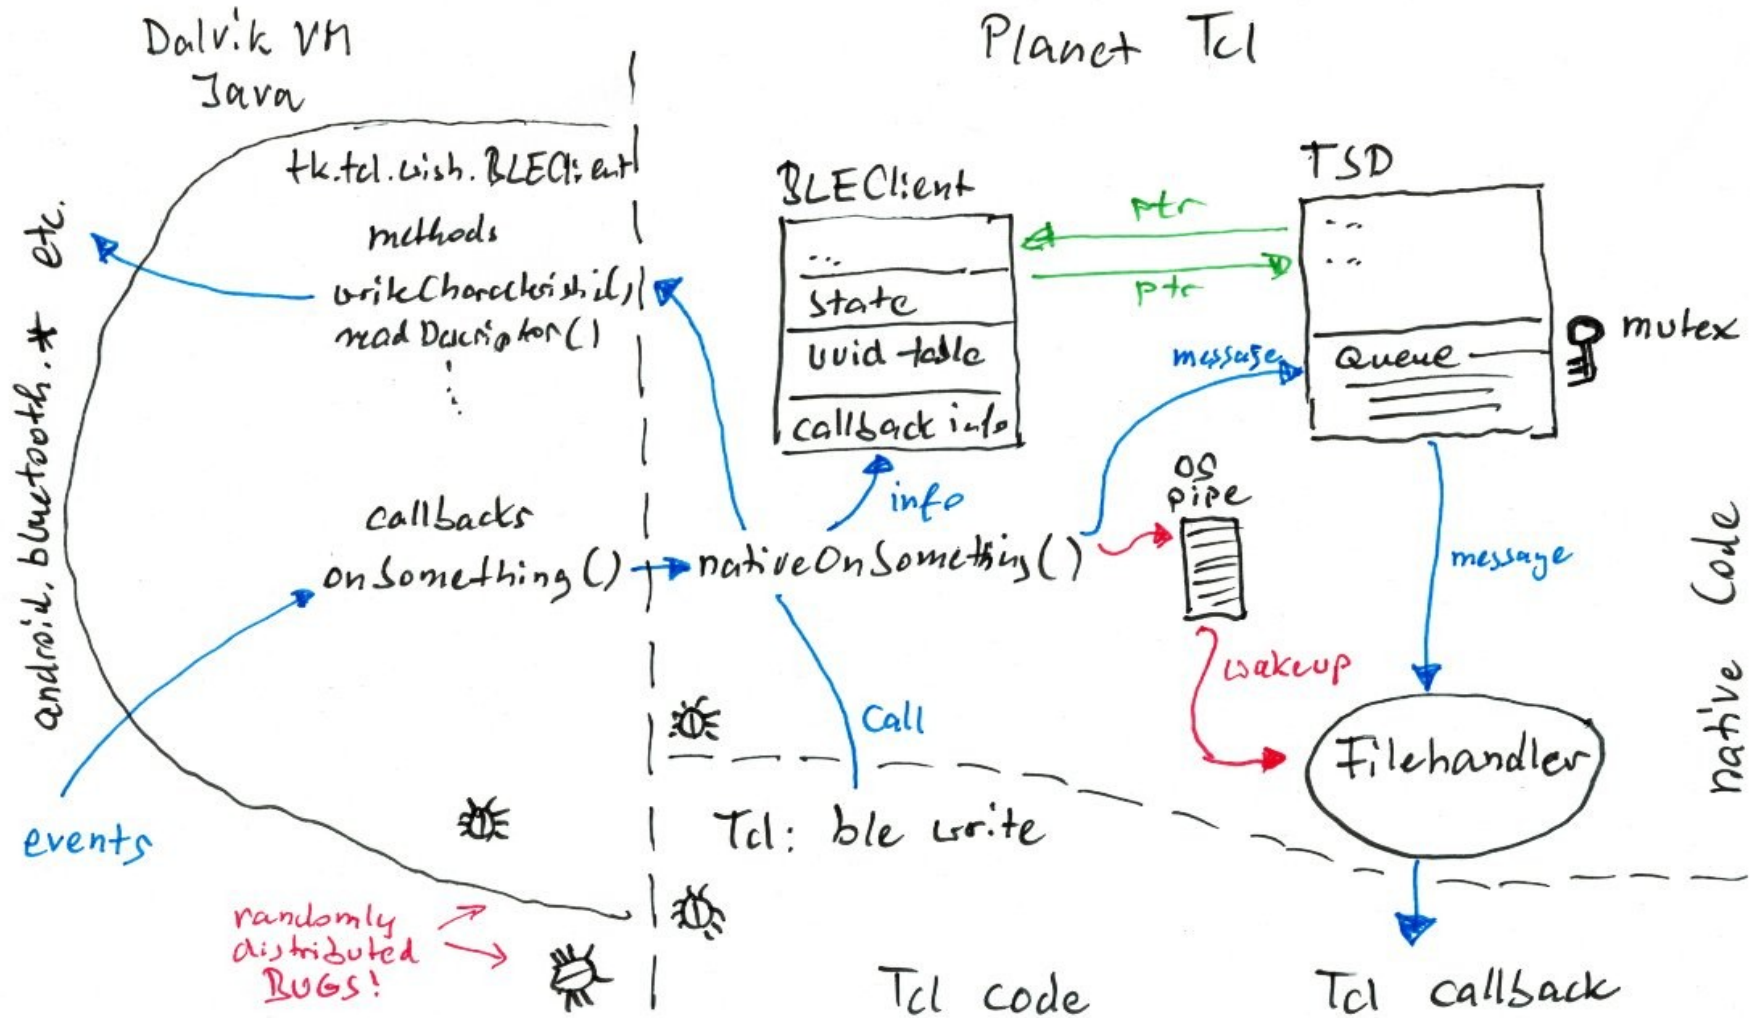 Dalvik VM
Java
Planet Tcl
tk.tcl.wish.BLEClient
methods
writeCharacteristic()
readDescriptor()
callbacks
onSomething()
android.bluetooth.* etc.
events
randomly
distributed
BUGS!
BLEClient
...
state
uuid table
callback info
ptr
ptr
TSD
...
...
Queue
mutex
message
info
OS
pipe
nativeOnSomething()
message
wakeup
Call
Filehandler
native Code
Tcl: ble write
Tcl code
Tcl callback